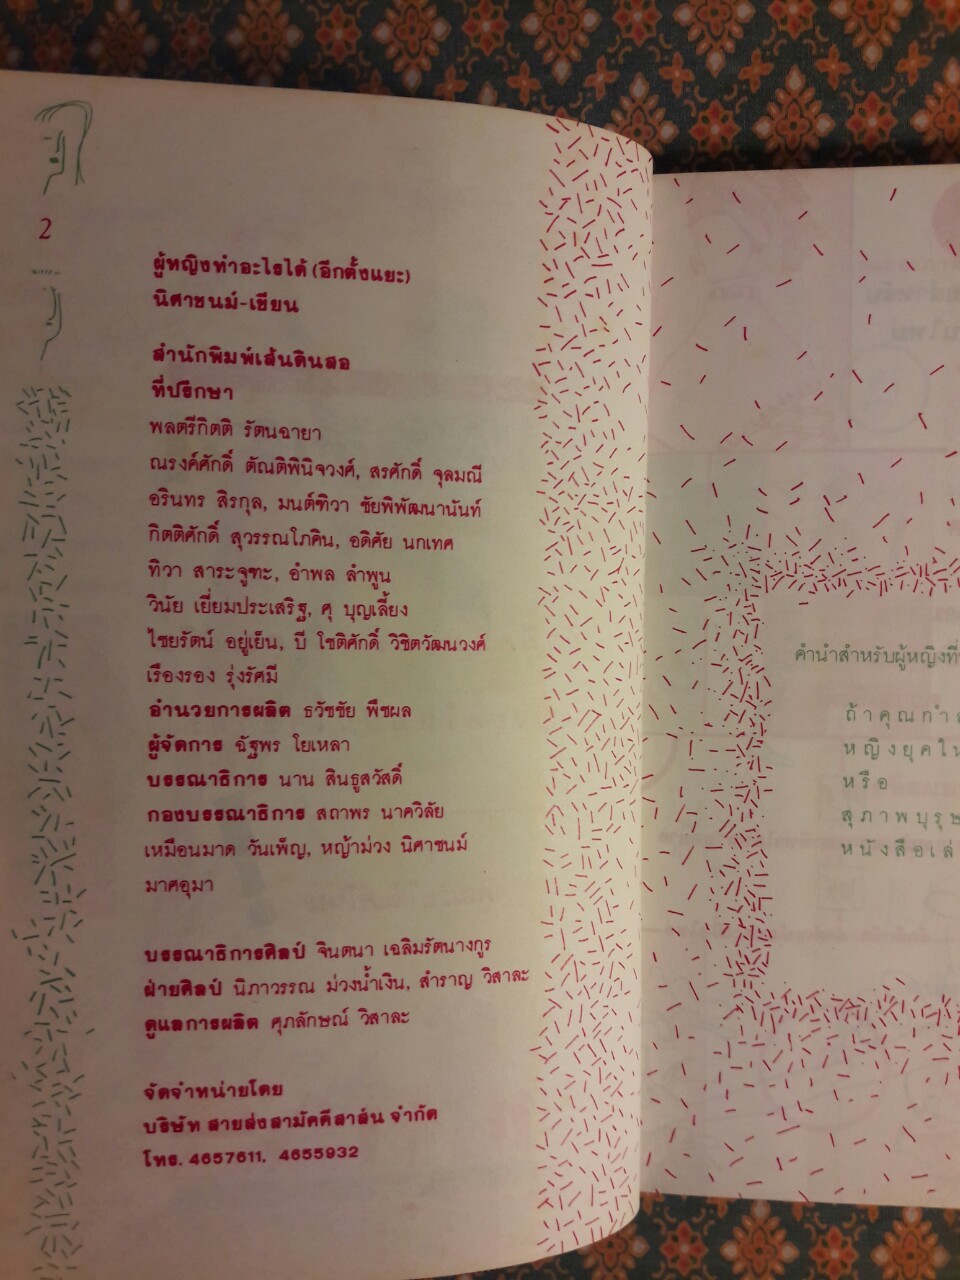 2
ผู้หญิงทำอะไรได้ (อีกตั้งแยะ)
นิศาชนม์-เขียน
สำนักพิมพ์เส้นดินสอ
ที่ปรึกษา
พลตรีกิตติ รัตนฉายา
ณรงค์ศักดิ์ ตัณติพินิจวงศ์, สรศักดิ์ จุลมณี
อรินทร สิรกุล, มนต์ทิวา ชัยพิพัฒนานันท์
กิตติศักดิ์ สุวรรณโภคิน, อดิศัย นกเทศ
ทิวา สาระจูฑะ, อำพล ลำพูน
วินัย เยี่ยมประเสริฐ, ศุ บุญเลี้ยง
ไชยรัตน์ อยู่เย็น, บี โชติศักดิ์ วิชิตวัฒนวงศ์
เรืองรอง รุ่งรัศมี
อำนวยการผลิต ธวัชชัย พืชผล
ผู้จัดการ ฉัฐพร โยเหลา
บรรณาธิการ นาน สินธูสวัสดิ์
กองบรรณาธิการ สถาพร นาควิลัย
เหมือนมาด วันเพ็ญ, หญ้าม่วง นิศาชนม์
มาศอุมา
บรรณาธิการศิลป์ จินตนา เฉลิมรัตนางกูร
ฝ่ายศิลป์ นิภาวรรณ ม่วงน้ำเงิน, สำราญ วิสาละ
ดูแลการผลิต ศุภลักษณ์ วิสาละ
จัดจำหน่ายโดย
บริษัท สายส่งสามัคคีสาส์น จำกัด
โทร. 4657611, 4655932
คำนำสำหรับผู้หญิงที่
ถ้าคุณกำ
หญิงยุคใ
หรือ
สุภาพบุรุษ
หนังสือเล่